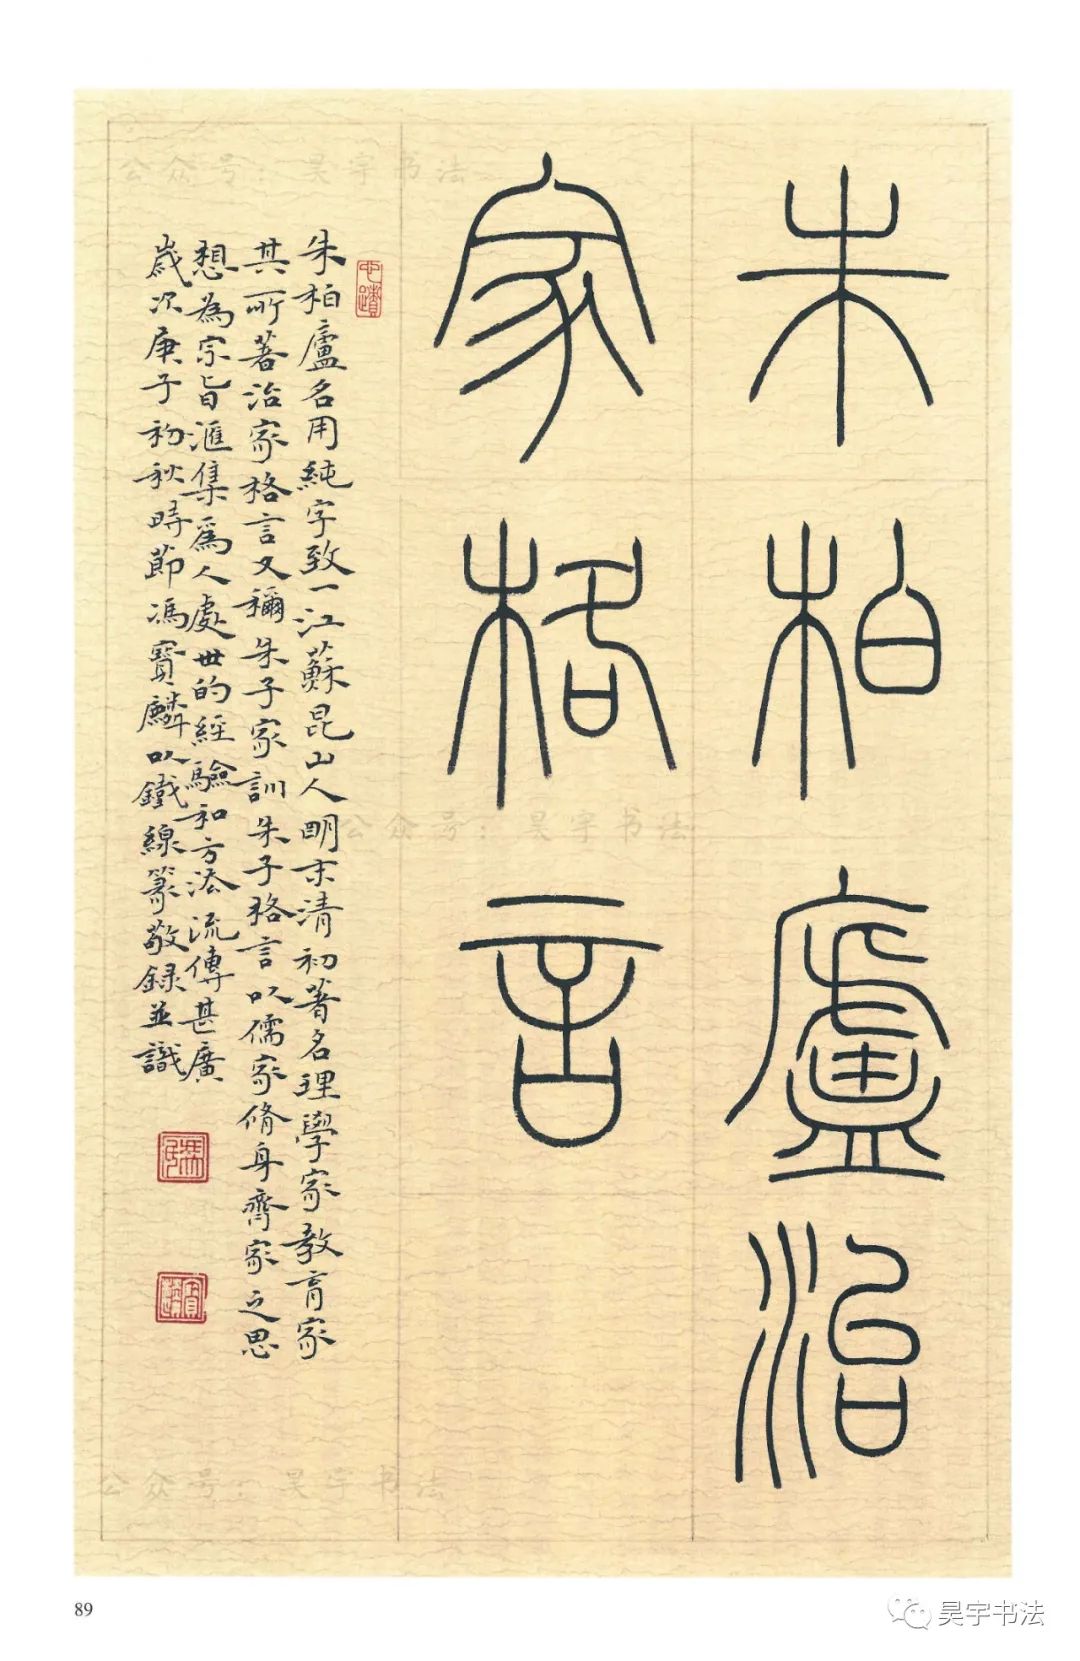 朱柏廬治
家格言
朱柏廬名用純字致一江蘇昆山人明末清初著名理學家教育家
其所著治家格言又稱朱子家訓朱子格言以儒家脩身齊家之思
想為宗旨滙集爲人處世的經驗和方法流傳甚廣
歲次庚子初秋時節馮寶麟以鐵線篆敬録並識
公众号：昊宇书法
公众号：昊宇书法
公众号：昊宇书法
89
昊宇书法